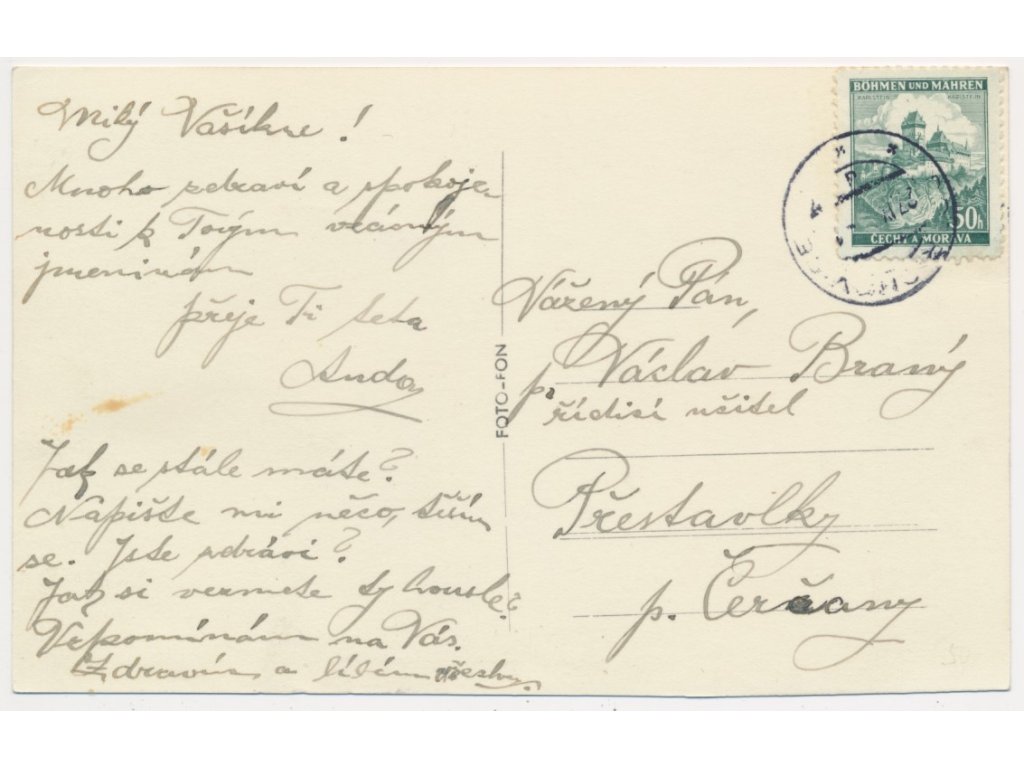 Milý Vašíkne!
Mnoho zdraví a spokoje-
nosti k Tvým vzácným
jmeninám
přeje Ti teta
Anda
Jak se stále máte?
Napište mi něco, těším
se. Jste zdrávi?
Jak si vezmete ty housle?
Vzpomínám na Vás.
Zdravím a líbám všechny.
FOTO-FON
BÖHMEN UND MÄHREN
KARLSTEIN KARLSTEIN
50h
ČECHY A MORAVA
Vážený Pán,
p. Václav Braný
řídící učitel
Přestavlky
p. Čerčany